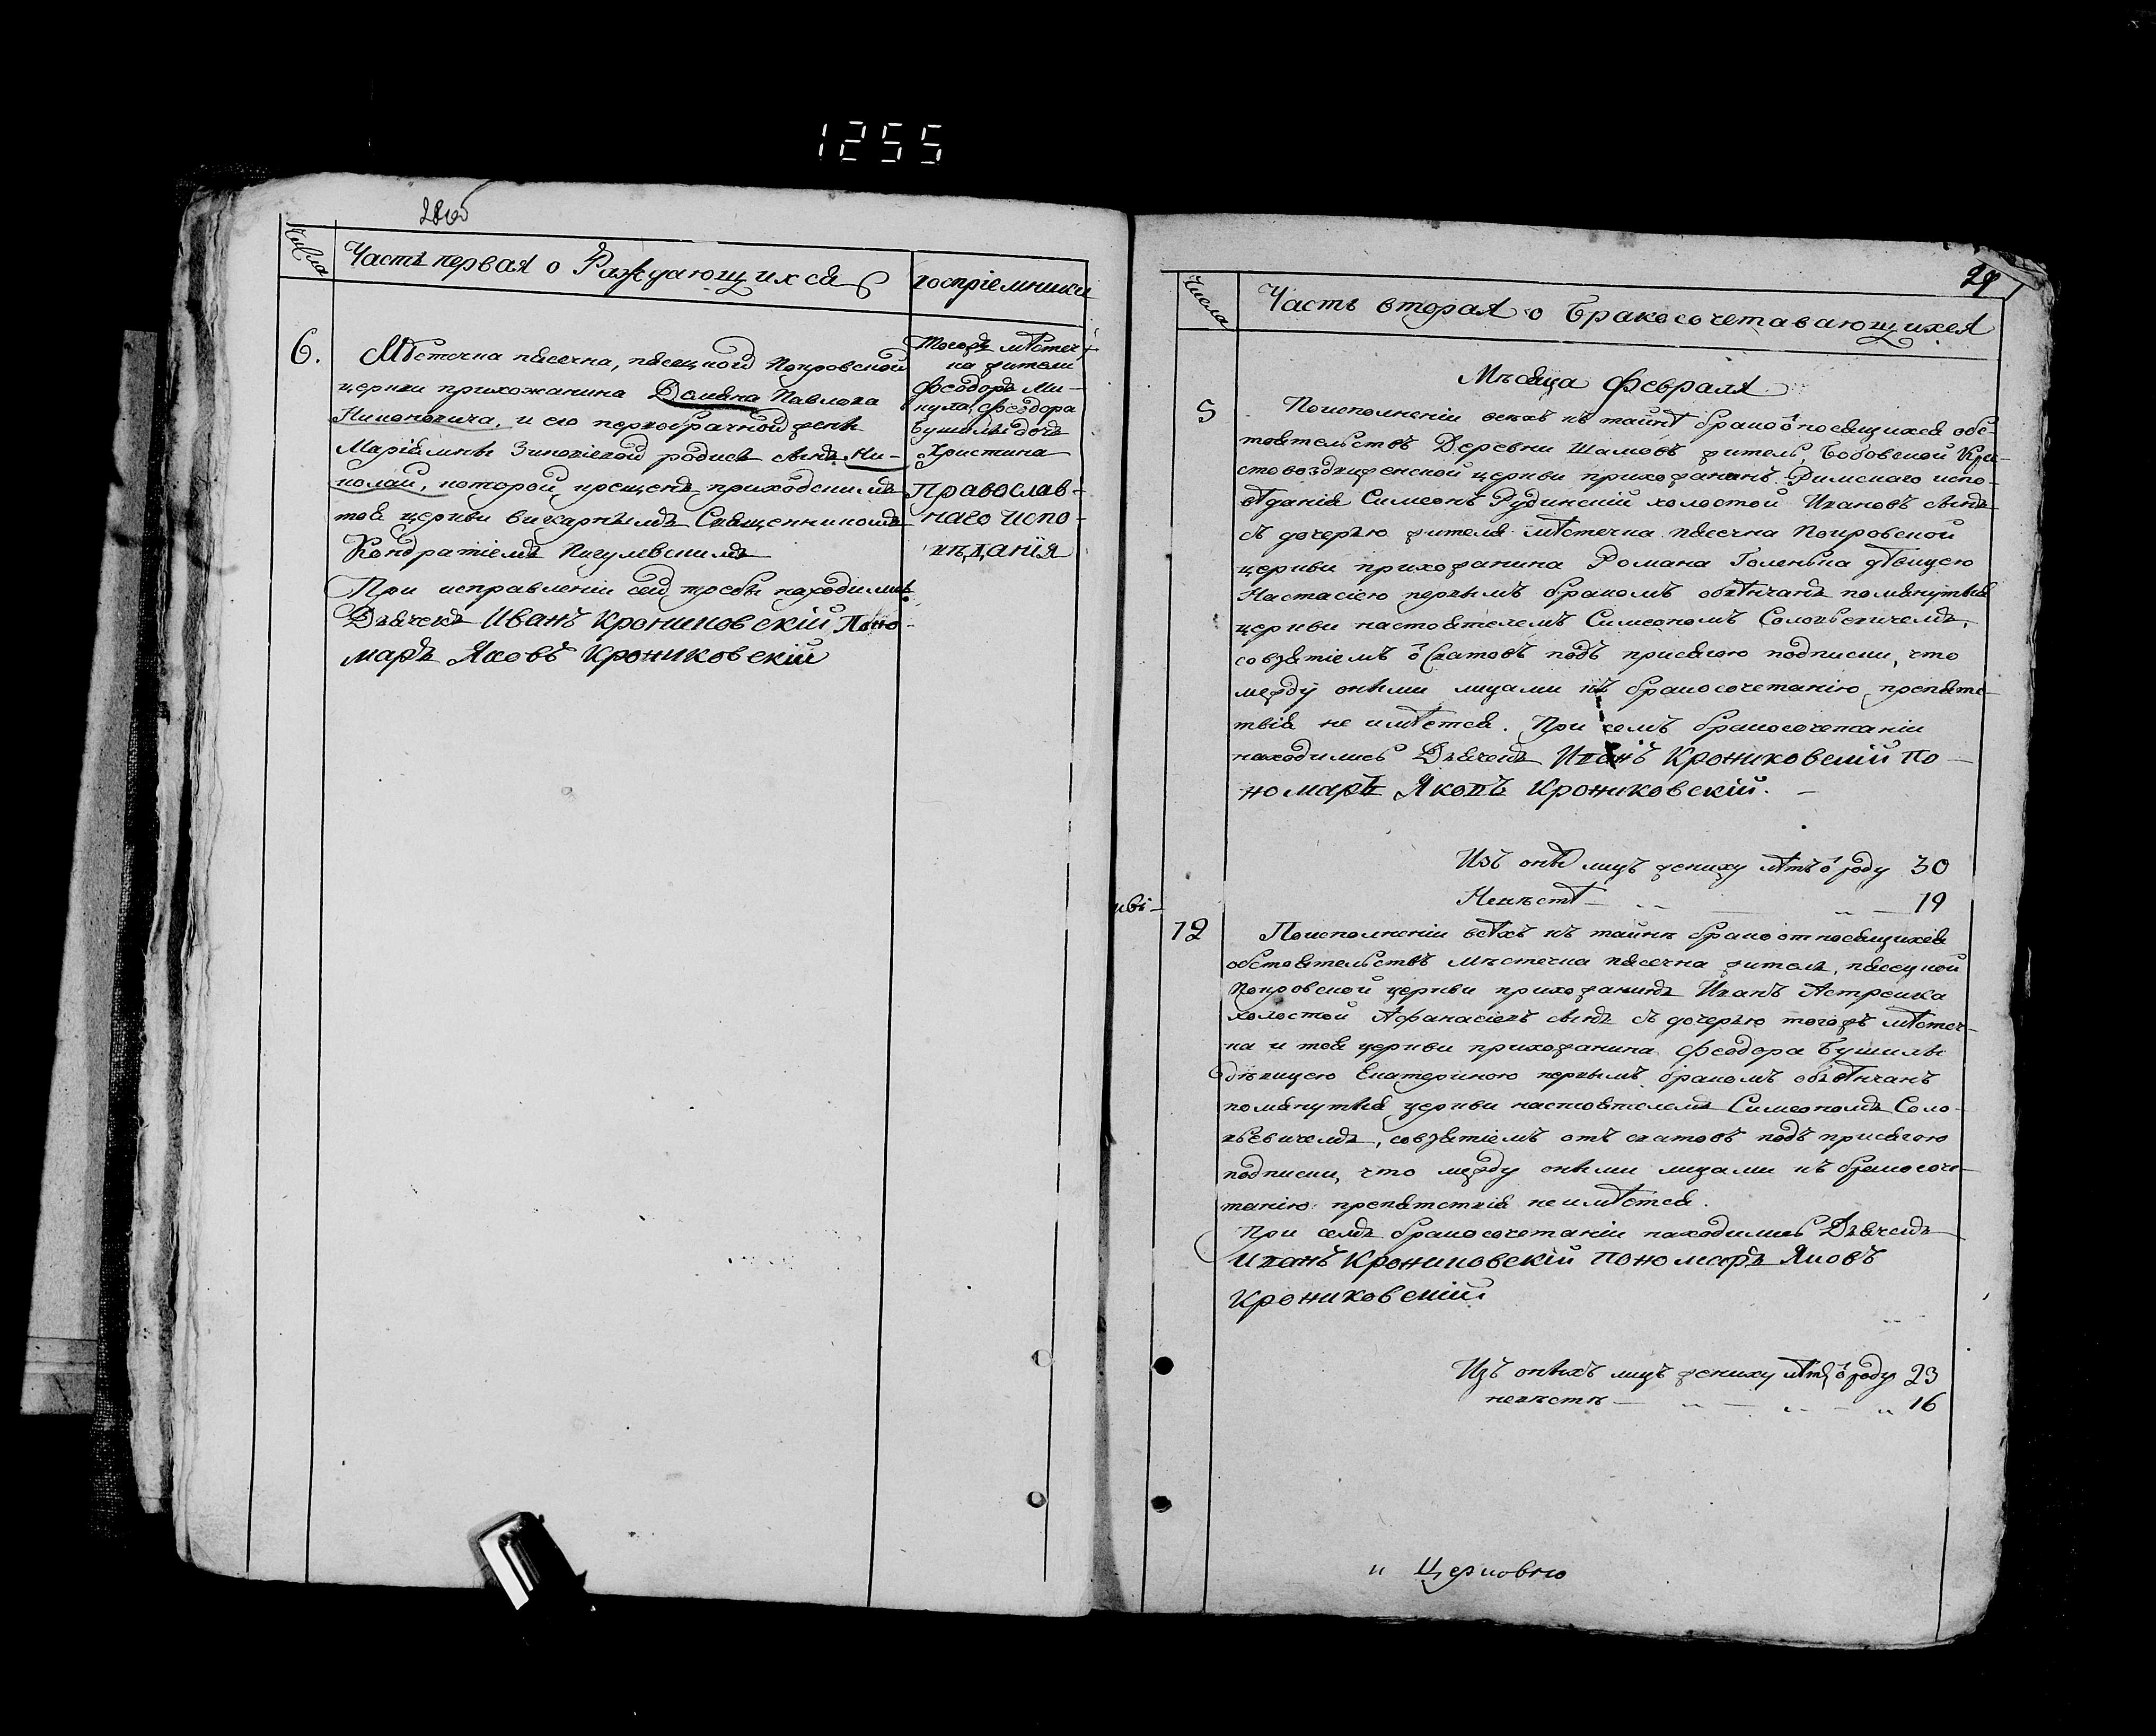 1255
28об
Числа
Часть первая о Раждающихся
воспріемники
6.
Мѣстечка пясечна, пясецкой Покровской
церкви прихожанина Демяна Павлова
и его первобрачной жены
Маріямны Зиновіевой родися сынъ Ни-
колай, которой крещенъ приходскимъ
тоя церкви викарнымъ Священникомъ
Кондратіемъ
При исправленіи сей требы находились
Дьячекъ Иванъ Крониковскій Поно-
марь Яковъ Крониковскій
тогожъ мѣстеч-
ка жители
Феодоръ Ми-
кула, Феодора
Бушилы дочь
Христина
Православ-
наго испо-
вѣданія
29
Числа
Часть вторая о Бракосочетавающихся
Мѣсяца Февраля
5
Поисполненіи всѣхъ къ тайнѣ брако относящихся обс-
тоятельствъ Деревни Шамовъ житель, Бобовской Кре-
стовоздвиженской церкви прихожанинъ Римскаго испо-
вѣданія Симеонъ Рудинскій холостой Ивановъ сынъ
съ дочерью жителя мѣстечка пясечна Покровской
церкви прихожанина Романа Голенька дѣвицею
Настасіею первымъ бракомъ обвѣнчанъ помянутыя
церкви настоятелемъ Симеономъ Соловьевичемъ,
совзятіемъ от сватовъ подъ присягою подписки, что
между оными лицами къ бракосочетанію препятс-
твія не имѣется. При семъ бракосочетаніи
находились Дьячекъ Иванъ Крониковскій По-
номарь Яковъ Крониковскій.
Изъ оны лицъ жениху лѣтъ от роду 30
Невѣстѣ — 19
12
Поисполненіи всѣхъ къ тайнѣ брако относящихся
обстоятельствъ мѣстечка пясечна житель, пясецкой
Покровской церкви прихожанинъ Иванъ Астрейка
холостой Афанасіевъ сынъ съ дочерью тогожъ мѣстеч-
ка и тоя церкви прихожанина Феодора Бушилы
дѣвицею Екатериною первымъ бракомъ обвѣнчанъ
помянутыя церкви настоятелемъ Симеономъ Соло-
вьевичемъ, совзятіемъ отъ сватовъ подъ присягою
подписки, что между оными лицами къ бракосоче-
танію препятствія неимѣется.
При семъ бракосочетаніи находились Дьячекъ
Иванъ Крониковскій Пономарь Яковъ
Крониковскій
Изъ оныхъ лицъ жениху лѣтъ от роду 23
невѣстѣ — 16
и Церковню